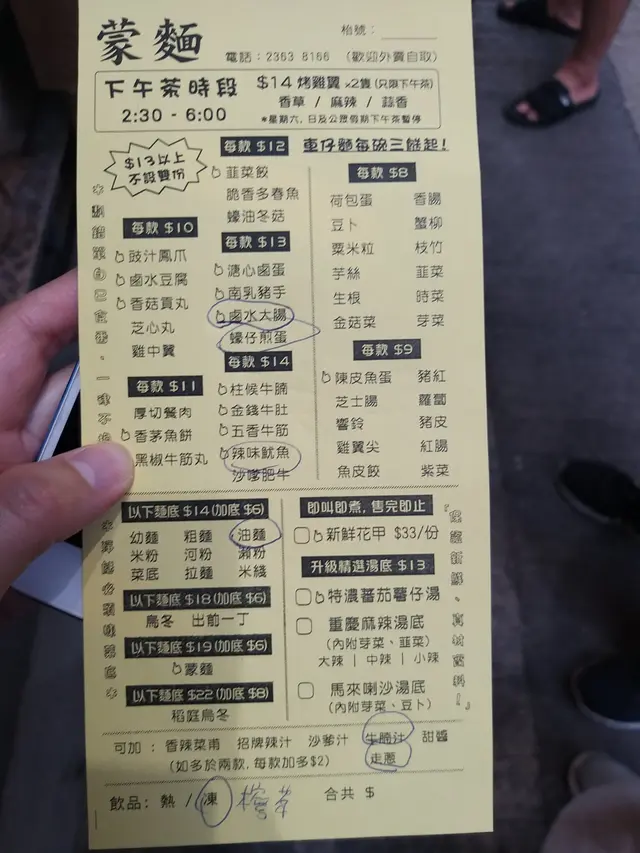 蒙麵
枱號：
電話：2363 8166 （歡迎外賣自取）
下午茶時段
2:30 - 6:00
$14 烤雞翼 x2隻 (只限下午茶)
香草 / 麻辣 / 蒜香
*星期六, 日及公眾假期下午茶暫停
$13以上
不設雙份
車仔麵每碗三餸起!
每款 $10
豉汁鳳爪
鹵水豆腐
香菇貢丸
芝心丸
雞中翼
每款 $11
厚切餐肉
香茅魚餅
黑椒牛筋丸
每款 $12
韮菜餃
脆香多春魚
蠔油冬菇
每款 $13
溏心鹵蛋
南乳豬手
鹵水大腸
蠔仔煎蛋
每款 $14
柱候牛腩
金錢牛肚
五香牛筋
辣味魷魚
沙嗲肥牛
每款 $8
荷包蛋 香腸
豆卜 蟹柳
粟米粒 枝竹
芋絲 韮菜
生根 時菜
金菇菜 芽菜
每款 $9
陳皮魚蛋 豬紅
芝士腸 蘿蔔
響鈴 豬皮
雞翼尖 紅腸
魚皮餃 紫菜
以下麵底 $14(加底 $6)
幼麵 粗麵 油麵
米粉 河粉 瀨粉
菜底 拉麵 米綫
以下麵底 $18(加底 $6)
烏冬 出前一丁
以下麵底 $19(加底 $6)
蒙麵
以下麵底 $22(加底 $8)
稻庭烏冬
即叫即煮, 售完即止
新鮮花甲 $33/份
升級精選湯底 $13
特濃番茄薯仔湯
重慶麻辣湯底
(內附芽菜、韮菜)
大辣 | 中辣 | 小辣
馬來喇沙湯底
(內附芽菜、豆卜)
可加：香辣菜甫 招牌辣汁 沙爹汁 牛腩汁 甜醬
(如多於兩款, 每款加多$2) 走蔥
飲品: 熱 / 凍 檸茶 合共 $